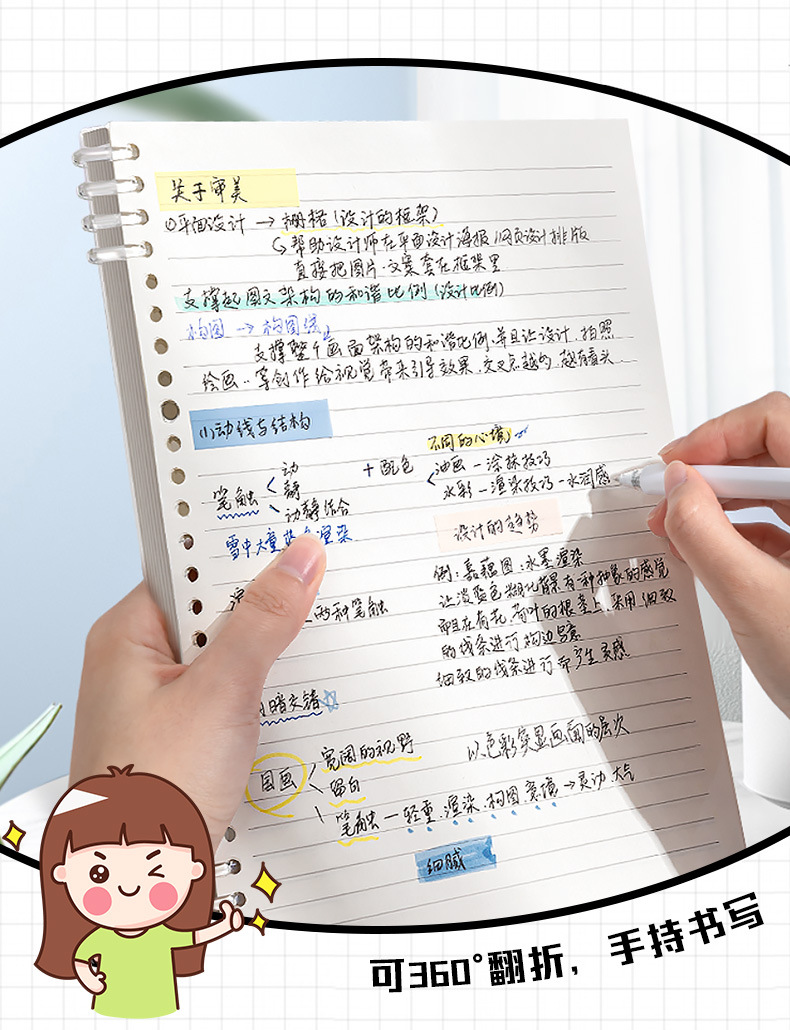 关于审美
①平面设计 → 栅格(设计的框架)
↳帮助设计师在平面设计海报/网页设计排版
直接把图片·文案套在框架里
支撑起图文架构的和谐比例(设计比例)
构图 → 构图线
支撑整个画面架构的和谐比例、并且让设计、拍照
绘画..等创作给视觉带来引导效果、交叉点越多、越有看头
(1)动线与结构
不同的心境
笔触 动 静 动静结合
+ 配色
油画 — 涂抹技巧
水彩 — 渲染技巧 — 水润感
雪中大量 渲染
设计的趋势
两种笔触
例:嘉蕴图:水墨渲染
让淡蓝色 糊化背景有一种抽象的感觉
而且在荷花、荷叶的根茎上采用 细致
的线条进行 勾边
细致的线条进行而产生灵感
暗交错
国画
宽阔的视野
留白
笔触 — 轻重、渲染、构图、意境 → 灵动、大气
以色彩突显画面的层次
细腻
可360°翻折，手持书写